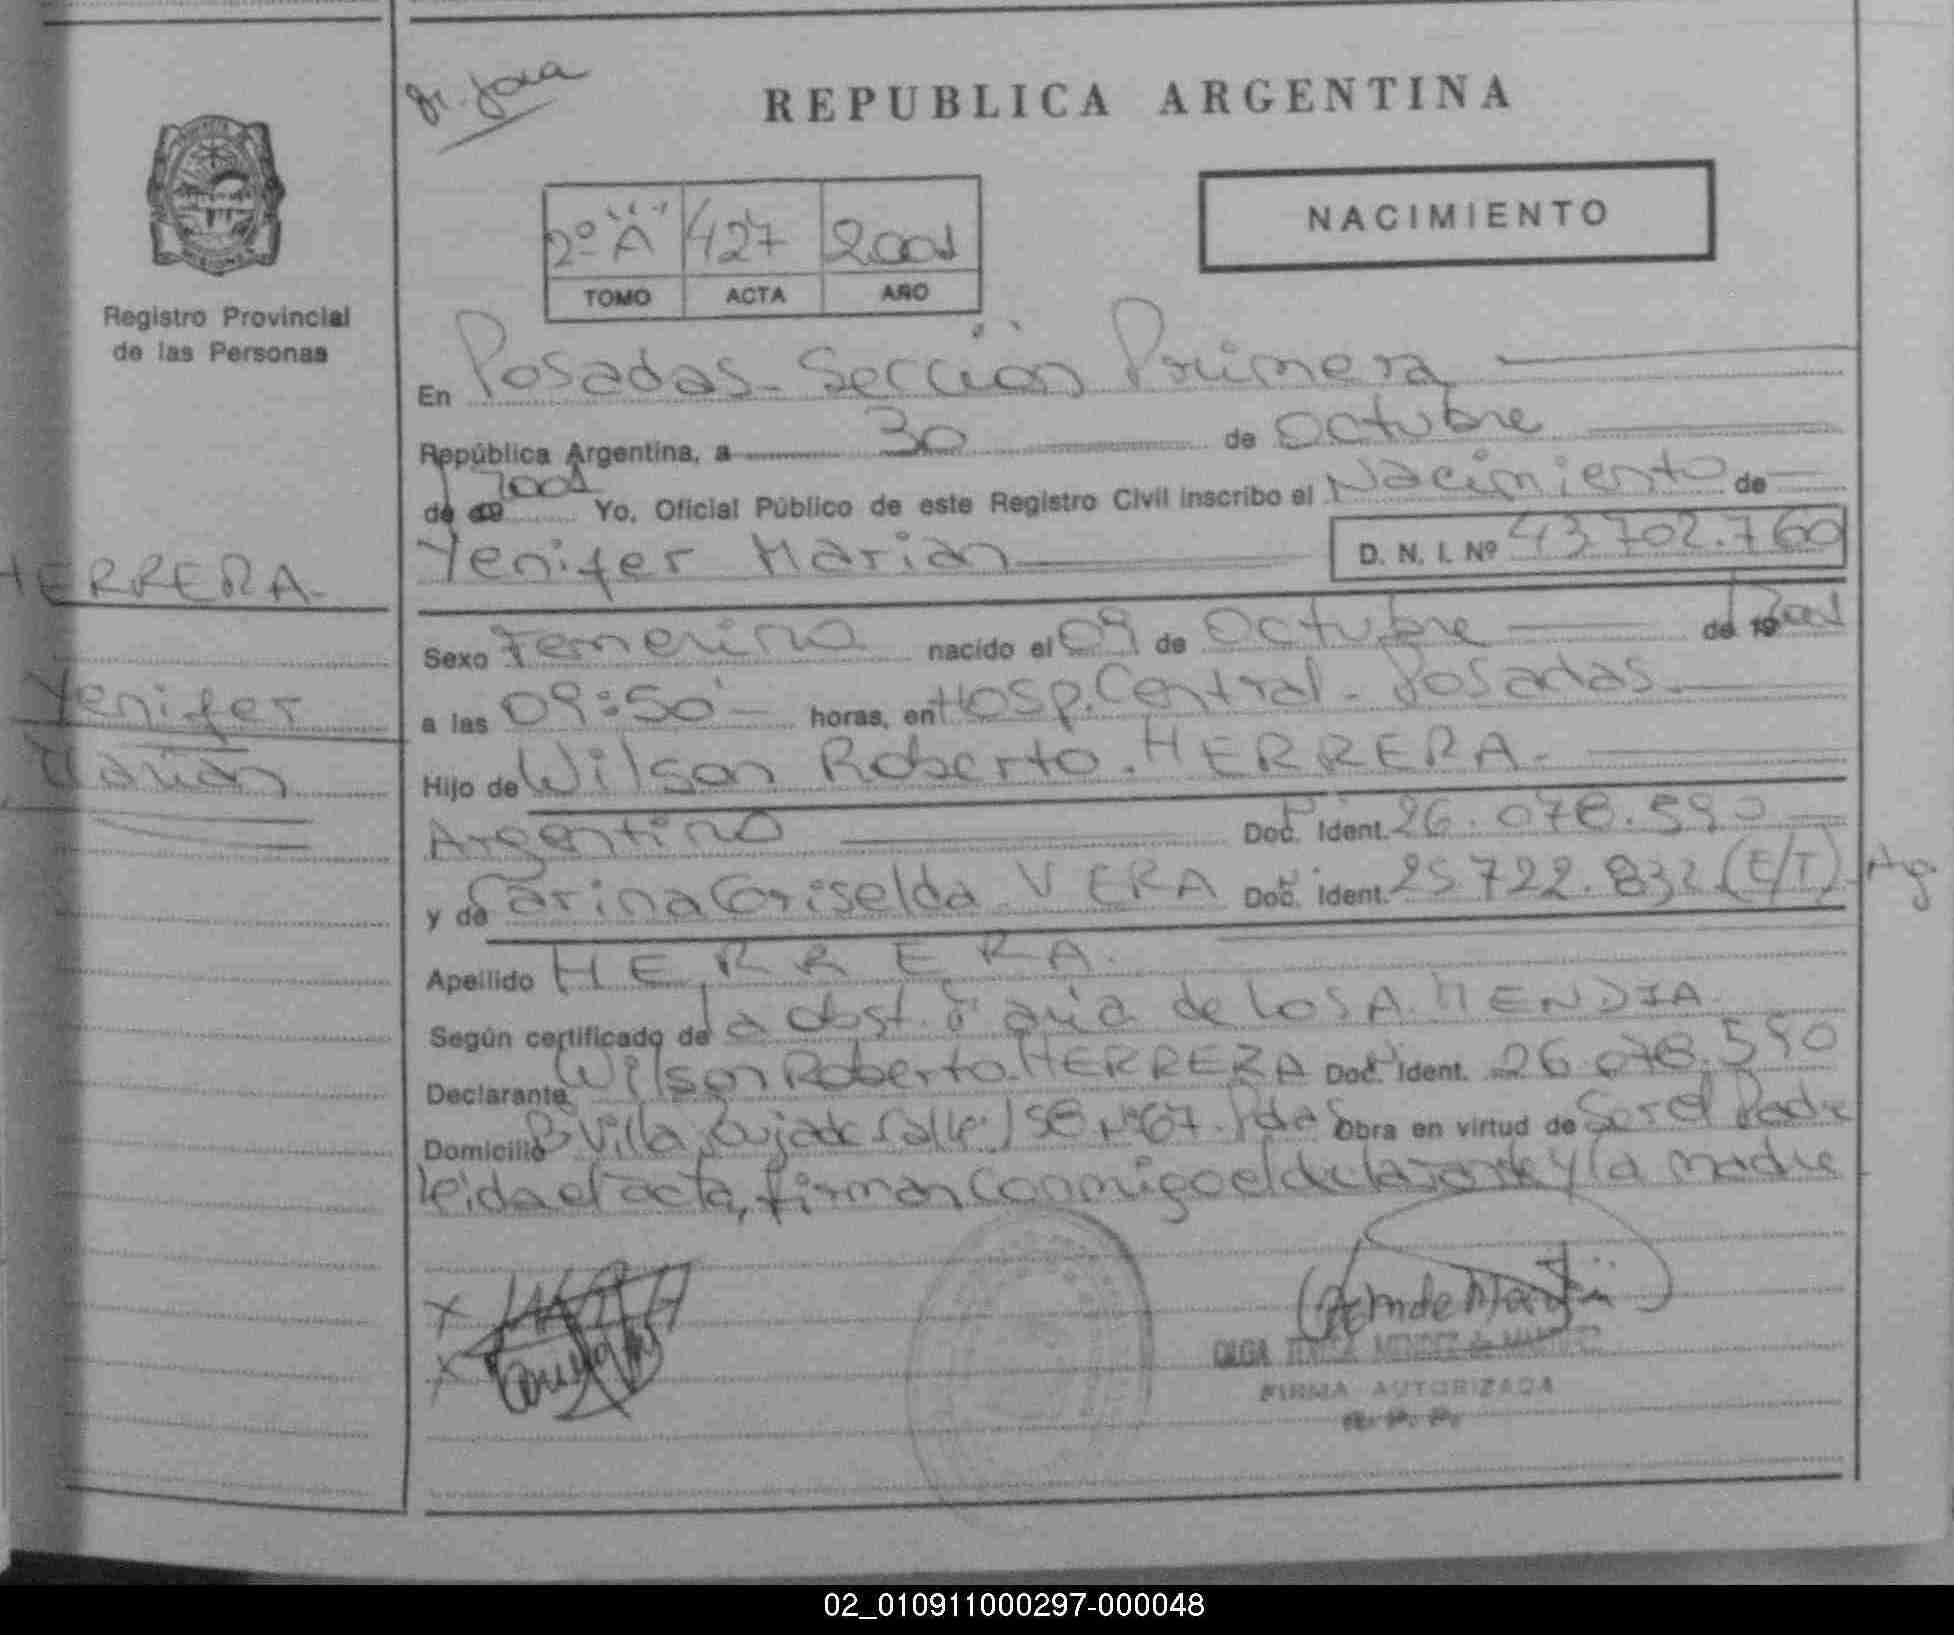 REPUBLICA ARGENTINA
NACIMIENTO
2º "A" 427 2001
TOMO ACTA AÑO
Registro Provincial
de las Personas
En Posadas - Sección Primera
República Argentina, a 30 de Octubre
de 2001 Yo, Oficial Público de este Registro Civil inscribo el Nacimiento de
Yenifer Marian D. N. I. Nº 43.702.760
HERRERA
Yenifer
Marian
Sexo Femenino nacido el 09 de Octubre de 2001
a las 09:50 horas, en Hosp. Central - Posadas
Hijo de Wilson Roberto HERRERA
Argentino Doc. Ident. 26.078.590
y de Carina Griselda VERA Doc. Ident. 25.722.832 (E/T) Arg
Apellido HERRERA
Según certificado de la obst. Maria de los A. MENDIA
Declarante Wilson Roberto HERRERA Doc. Ident. 26.078.590
Domicilio Bº Villa calle 158 Nº 67 Pdas Obra en virtud de Ser el Padre
leida el acta, firman conmigo el declarante y la madre
OLGA TERESA MENDEZ de MARTINEZ
FIRMA AUTORIZADA
R. P. P.
02_010911000297-000048